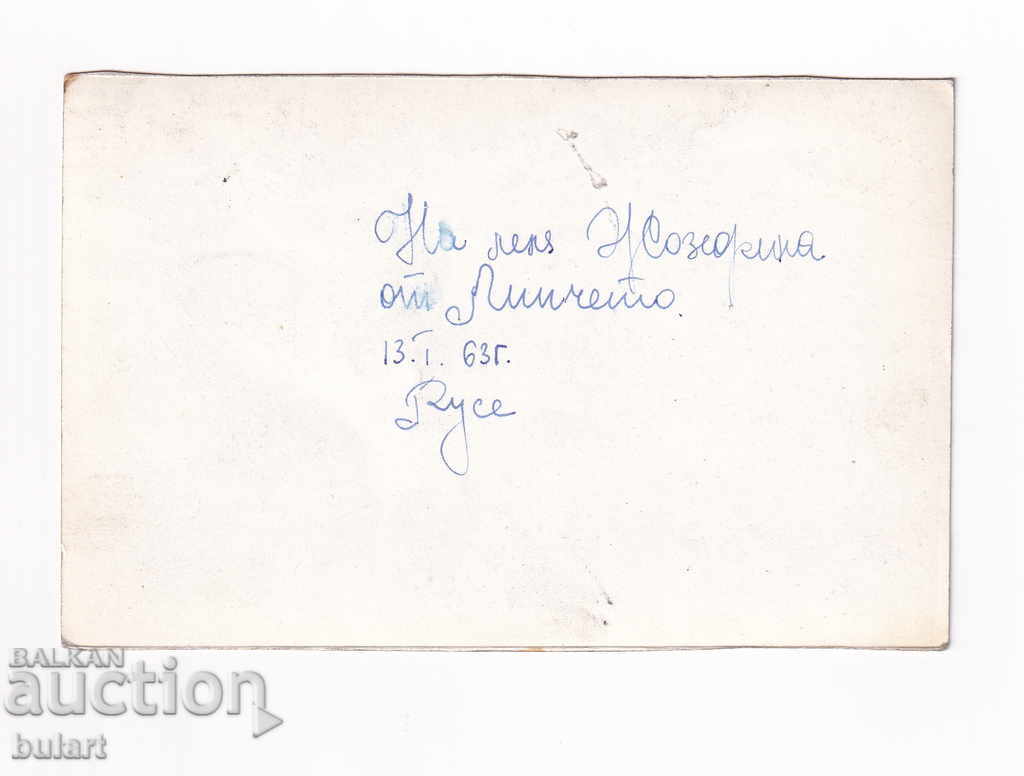 На леля Жозефина
от Линчето.
13.I. 63г.
Русе
BALKAN
auction
bulart